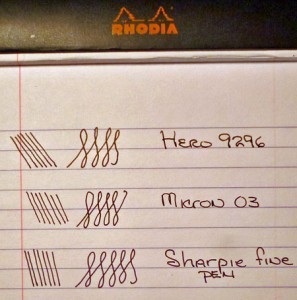 RHODIA
Hero 9296
Micron 03
Sharpie fine
PEN